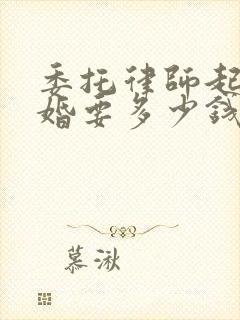 委托律師起
婚要多少錢
慕湫